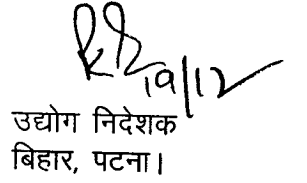 19/12
उद्योग निदेशक
बिहार, पटना।